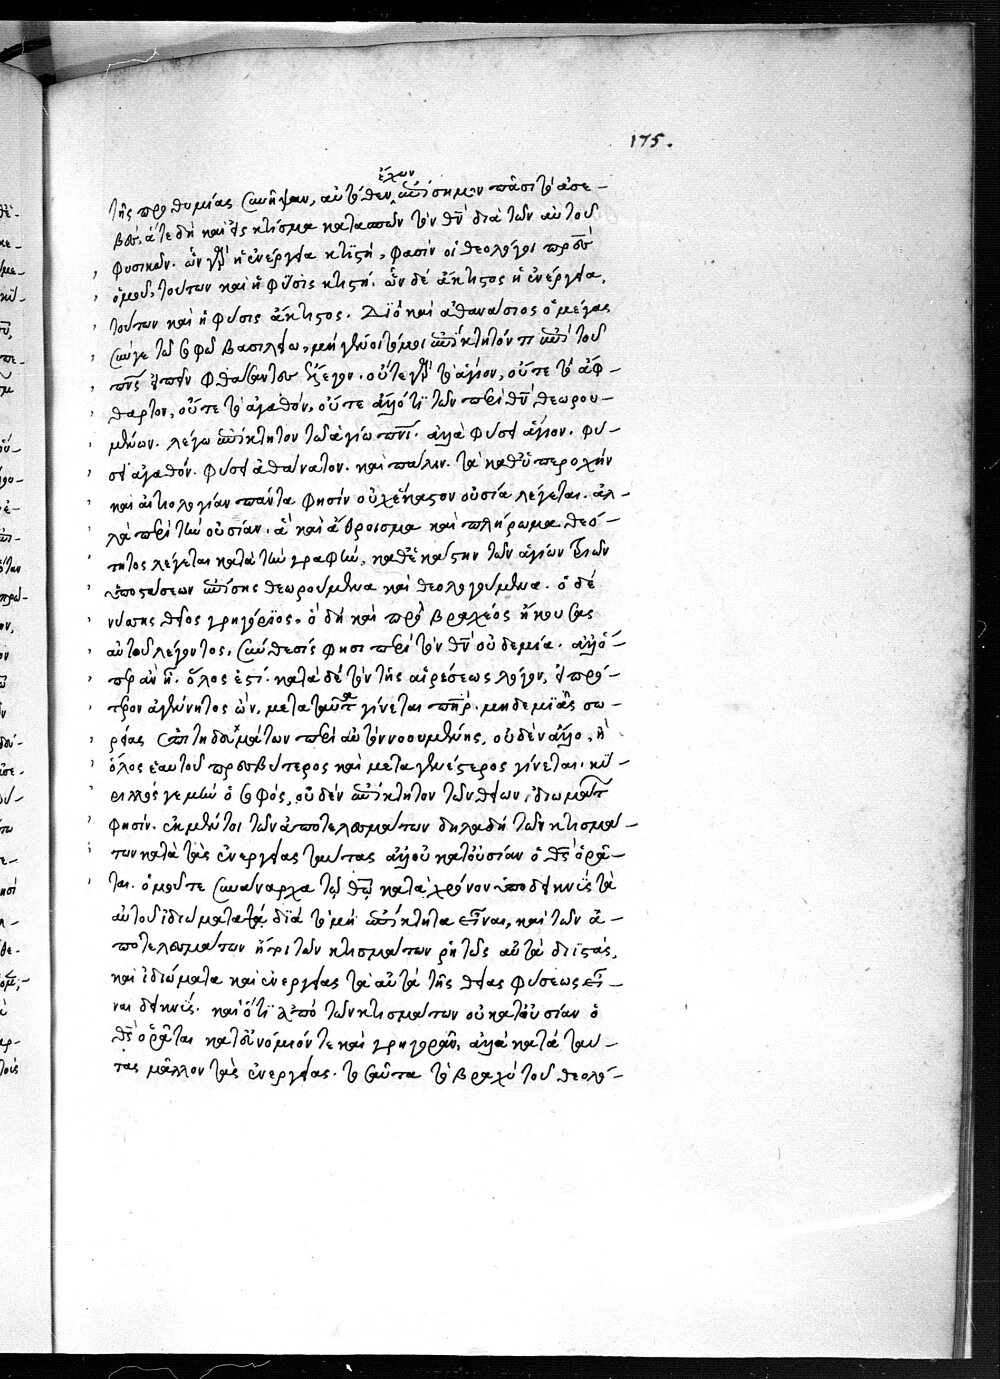 175.
ἔχων
τῆς προθυμίας συνῆψαν, αὐτόθεν ἐπίσημον πᾶσι τὸ ἀσε-
βὲς, ἅτε δὴ καὶ εἰς κτίσμα κατασπῶν τὸν θν̄ διὰ τῶν αὐτοῦ
φυσικῶν. ὧν γὰρ ἡ ἐνέργεια κτιστὴ, φασὶν οἱ θεολόγοι πρὸς
ὁμοῦ, τούτων καὶ ἡ φύσις κτιστή. ὧν δὲ ἄκτιστος ἡ ἐνέργεια,
τούτων καὶ ἡ φύσις ἄκτιστος. Διὸ καὶ ἀθανάσιος ὁ μέγας
τῶ σοφῶ βασιλείω, μὴ γένοιτό μοι ἐπίκτητόν τι ἐπὶ τοῦ
πνς̄ εἰπεῖν ἔλεγεν. οὔτε γὰρ τὸ ἅγιον, οὔτε τὸ ἄφ-
θαρτον, οὔτε τὸ ἀγαθόν, οὔτε ἄλλό τι τῶν περὶ θν̄ θεωρου-
μένων. λέγω ἐπίκτητον τῶ ἁγίω πνῑ. ἀλλὰ φύσει ἅγιον. φύ-
σει ἀγαθόν. φύσει ἀθάνατον. καὶ πάλιν. τὰ καθ' ὑπεροχὴν
καὶ αἰτιολογίαν πάντα φησὶν οὐχ ἕκαστον οὐσία λέγεται. ἀλ-
λὰ περὶ τὴν οὐσίαν. ἃ καὶ ἄθροισμα καὶ πλήρωμα θεό-
τητος λέγεται κατὰ τὴν γραφὴν, καθ' ἑκάστην τῶν ἁγίων τριῶν
ὑποστάσεων ἐπίσης θεωρούμενα καὶ θεολογούμενα. ὁ δὲ
νύσσης θεῖος γρηγόριος, ὃ δὴ καὶ πρὸ βραχέος ἤκουσας
αὐτοῦ λέγοντος, σύνθεσίς φησι περὶ τὸν θν̄ οὐδεμία. ἀλλ' ὅ-
περ ἂν ᾖ. ὅλος ἐστί. κατὰ δὲ τὸν τῆς αἱρέσεως λόγον, εἰ πρό-
τερον ἀγέννητος ὢν, μετὰ ταῦτα γίνεται πηρ. μηδεμιᾶς σω-
ρείας ἐπιτηδευμάτων περὶ αὐτὸν νοουμένης, οὐδὲν ἄλλο, ἢ
ὅλος ἑαυτοῦ πρεσβύτερος καὶ μεταγενέστερος γίνεται. κύ-
ριλλός γε μὴν ὁ σοφός, οὐδὲν ἐπίκτητον τῶν θείων ἰδιωμάτων
φησίν. ἐκ μέντοι τῶν ἀποτελεσμάτων δηλαδὴ τῶν κτισμά-
των κατὰ τὰς ἐνεργείας ταύτας ἀλλ' οὐ κατ' οὐσίαν ὁ θς̄ ὁρᾶ-
ται. ὁμοῦ τε συνάναρχα τῶ θω̄ κατὰ χρόνον ὑποδεικνὺς τὰ
αὐτοῦ ἰδιώματα διὰ τὸ μὴ ἐπίκτητα εἶναι, καὶ τῶν ἀ-
ποτελεσμάτων ἤτοι τῶν κτισμάτων ῥητῶς αὐτὰ διϊστὰς,
καὶ ἰδιώματα καὶ ἐνεργείας τὰ αὐτὰ τῆς θείας φύσεως εἶ-
ναι δεικνύς. καὶ ὅτι ἀπὸ τῶν κτισμάτων οὐ κατ' οὐσίαν ὁ
θς̄ ὁρᾶται κατ' εὐνόμιόν τε καὶ γρηγορᾶν, ἀλλὰ κατὰ ταύ-
τας μᾶλλον τὰς ἐνεργείας. τοσαῦτα τὸ βραχὺ τοῦ θεολό-